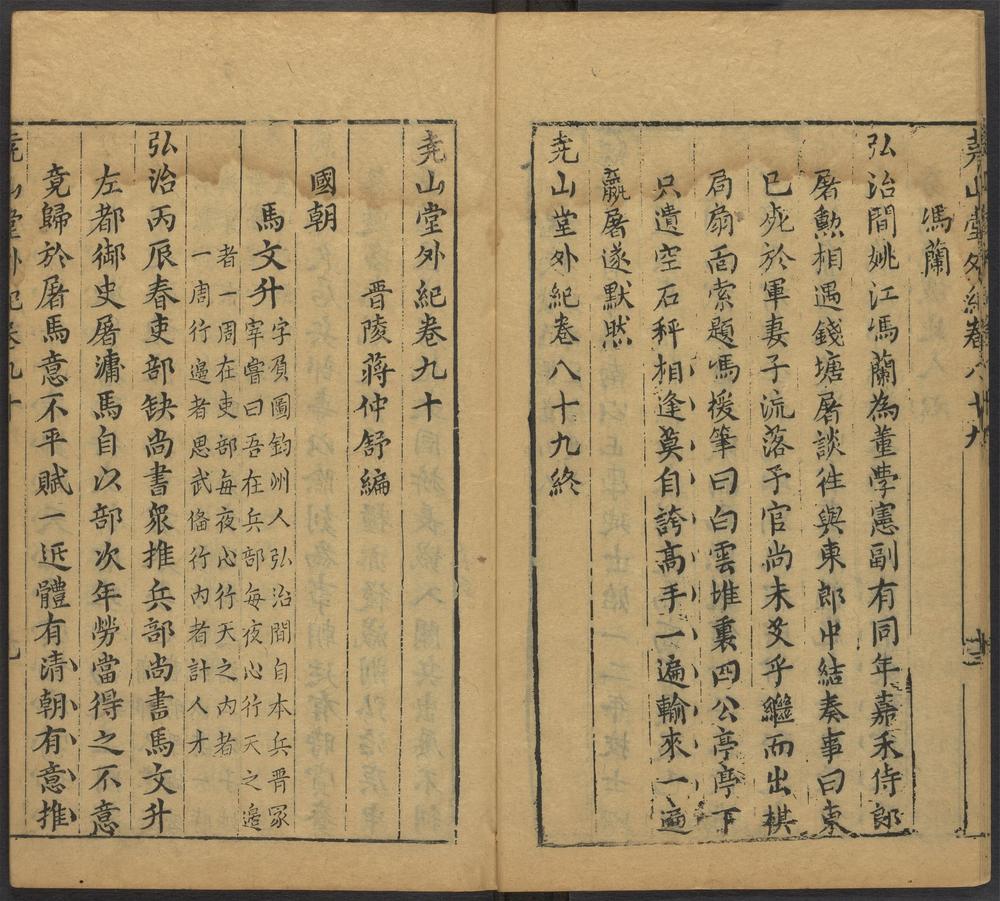 堯山堂外紀卷八十九 十三
馮蘭
弘治間姚江馮蘭為董學憲副有同年嘉禾侍郎
屠勲相遇錢塘屠談往與東郎中結奏事曰東
已死於軍妻子流落予官尚未爻乎繼而出棋
局扇面索題馮援筆曰白雲堆裏四公亭亭下
只遺空石秤相逢莫自誇高手一遍輸來一遍
贏屠遂默然
堯山堂外紀卷八十九終
堯山堂外紀卷九十
晋陵蔣仲舒編
國朝
馬文升 字負圖鈞州人弘治間自本兵晋冡
宰嘗曰吾在兵部每夜心行天之邉
者一周在吏部每夜心行天之内者
一周行邉者思武俻行内者計人才
弘治丙辰春吏部缺尚書衆推兵部尚書馬文升
左都御史屠滽馬自以部次年勞當得之不意
竟歸於屠馬意不平賦一近體有清朝有意推
堯山堂外紀卷九十